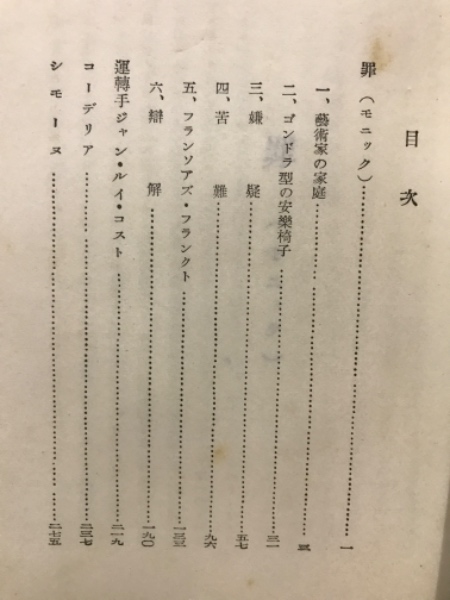 目次
罪（モニック）……一
一、藝術家の家庭……三
二、ゴンドラ型の安樂椅子……三一
三、嫌疑……五七
四、苦難……九六
五、フランソアズ・フランクト……一三三
六、辯解……一九〇
運轉手ジャン・ルイ・コスト……二一九
コーデリア……二三七
シモーヌ……二七五